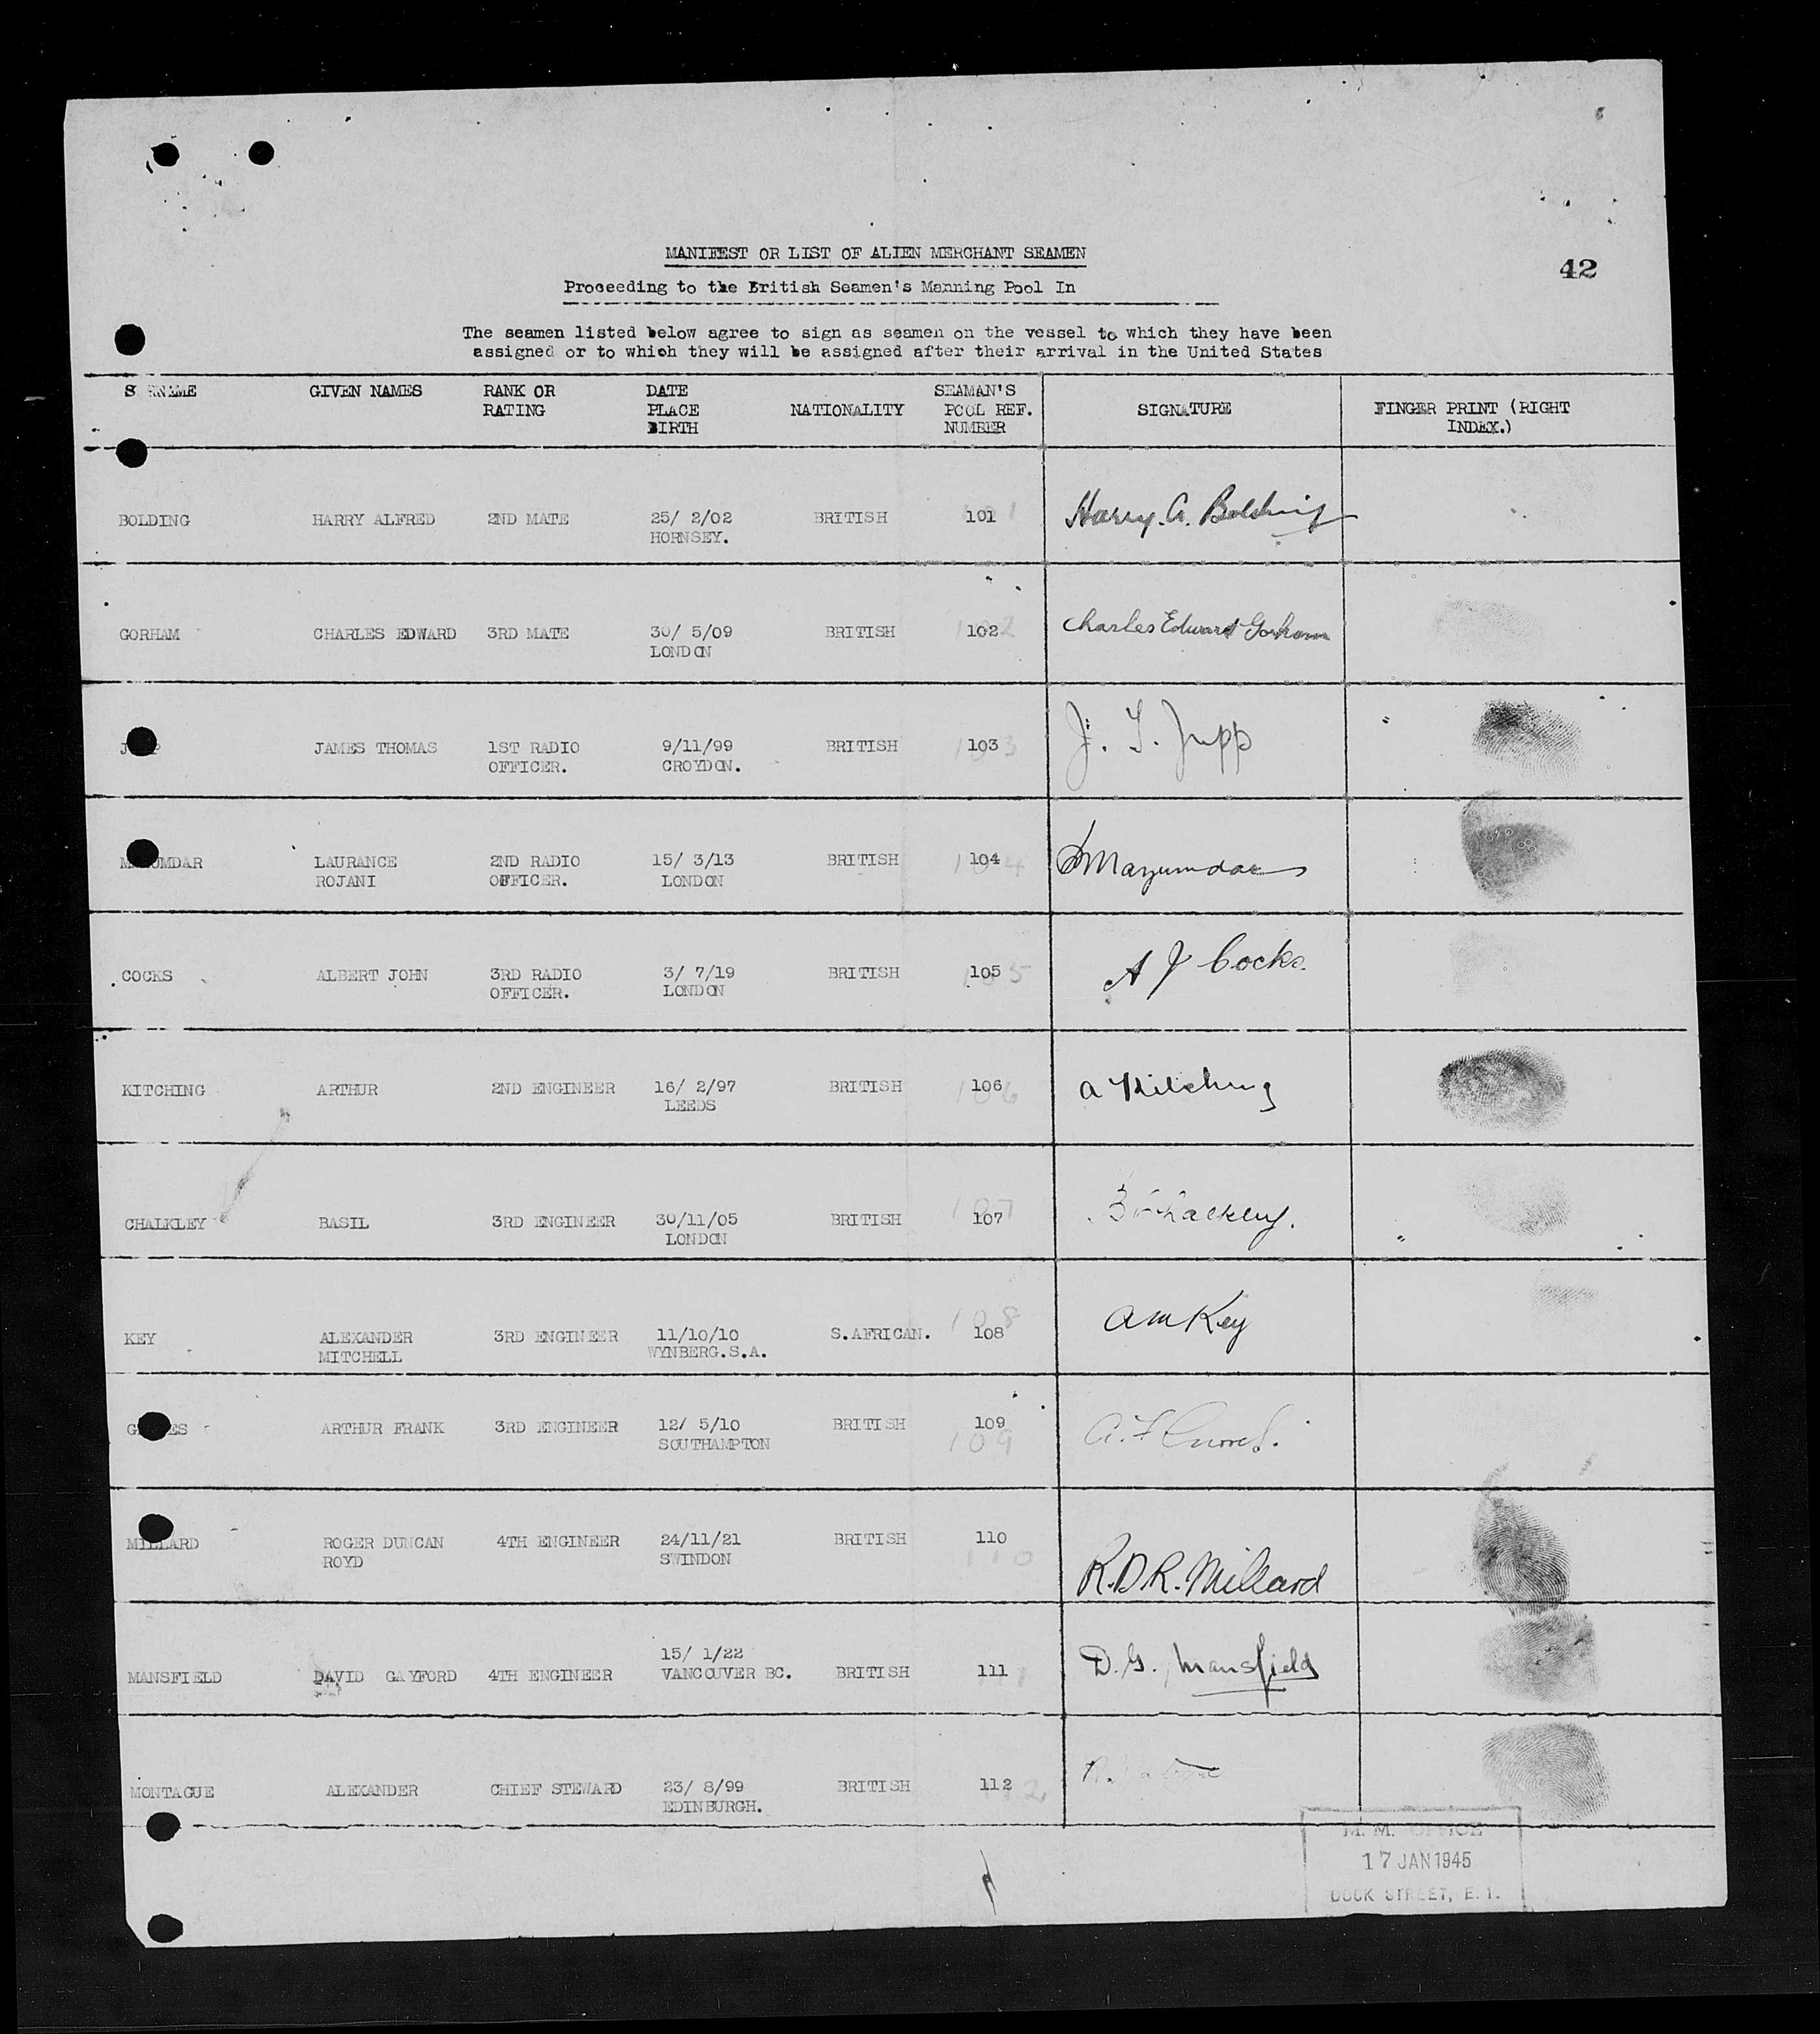 MANIFEST OR LIST OF ALIEN MERCHANT SEAMEN
42
Proceeding to the British Seamen's Manning Pool In
The seamen listed below agree to sign as seamen on the vessel to which they have been
assigned or to which they will be assigned after their arrival in the United States
SURNAME GIVEN NAMES RANK OR RATING DATE PLACE BIRTH NATIONALITY SEAMAN'S POOL REF. NUMBER SIGNATURE FINGER PRINT (RIGHT INDEX.)
BOLDING HARRY ALFRED 2ND MATE 25/ 2/02 BRITISH 101 Harry. A. Bolding
HORNSEY.
GORHAM CHARLES EDWARD 3RD MATE 30/ 5/09 BRITISH 102 Charles Edward Gorham
LONDON
JUPP JAMES THOMAS 1ST RADIO 9/11/99 BRITISH 103 J. T. Jupp
OFFICER. CROYDON.
MAZUMDAR LAURANCE 2ND RADIO 15/ 3/13 BRITISH 104 Mazumdar
ROJANI OFFICER. LONDON
COCKS ALBERT JOHN 3RD RADIO 3/ 7/19 BRITISH 105 A J Cocks.
OFFICER. LONDON
KITCHING ARTHUR 2ND ENGINEER 16/ 2/97 BRITISH 106 A Kitching
LEEDS
CHALKLEY BASIL 3RD ENGINEER 30/11/05 BRITISH 107 B Chalkley.
LONDON
KEY ALEXANDER 3RD ENGINEER 11/10/10 S.AFRICAN. 108 A M Key
MITCHELL WYNBERG.S.A.
ARTHUR FRANK 3RD ENGINEER 12/ 5/10 BRITISH 109 A. F.
SOUTHAMPTON
MILLARD ROGER DUNCAN 4TH ENGINEER 24/11/21 BRITISH 110 R.D.R. Millard
ROYD SWINDON
15/ 1/22
MANSFIELD DAVID GAYFORD 4TH ENGINEER VANCOUVER BC. BRITISH 111 D. G. Mansfield
MONTAGUE ALEXANDER CHIEF STEWARD 23/ 8/99 BRITISH 112
EDINBURGH.
M. M. OFFICE
17 JAN 1945
DOCK STREET, E. 1.